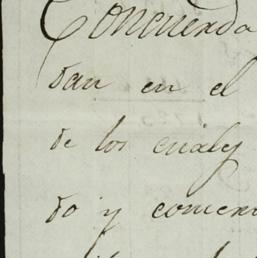 Concuerda
dan en el
de los cuales
do y comen